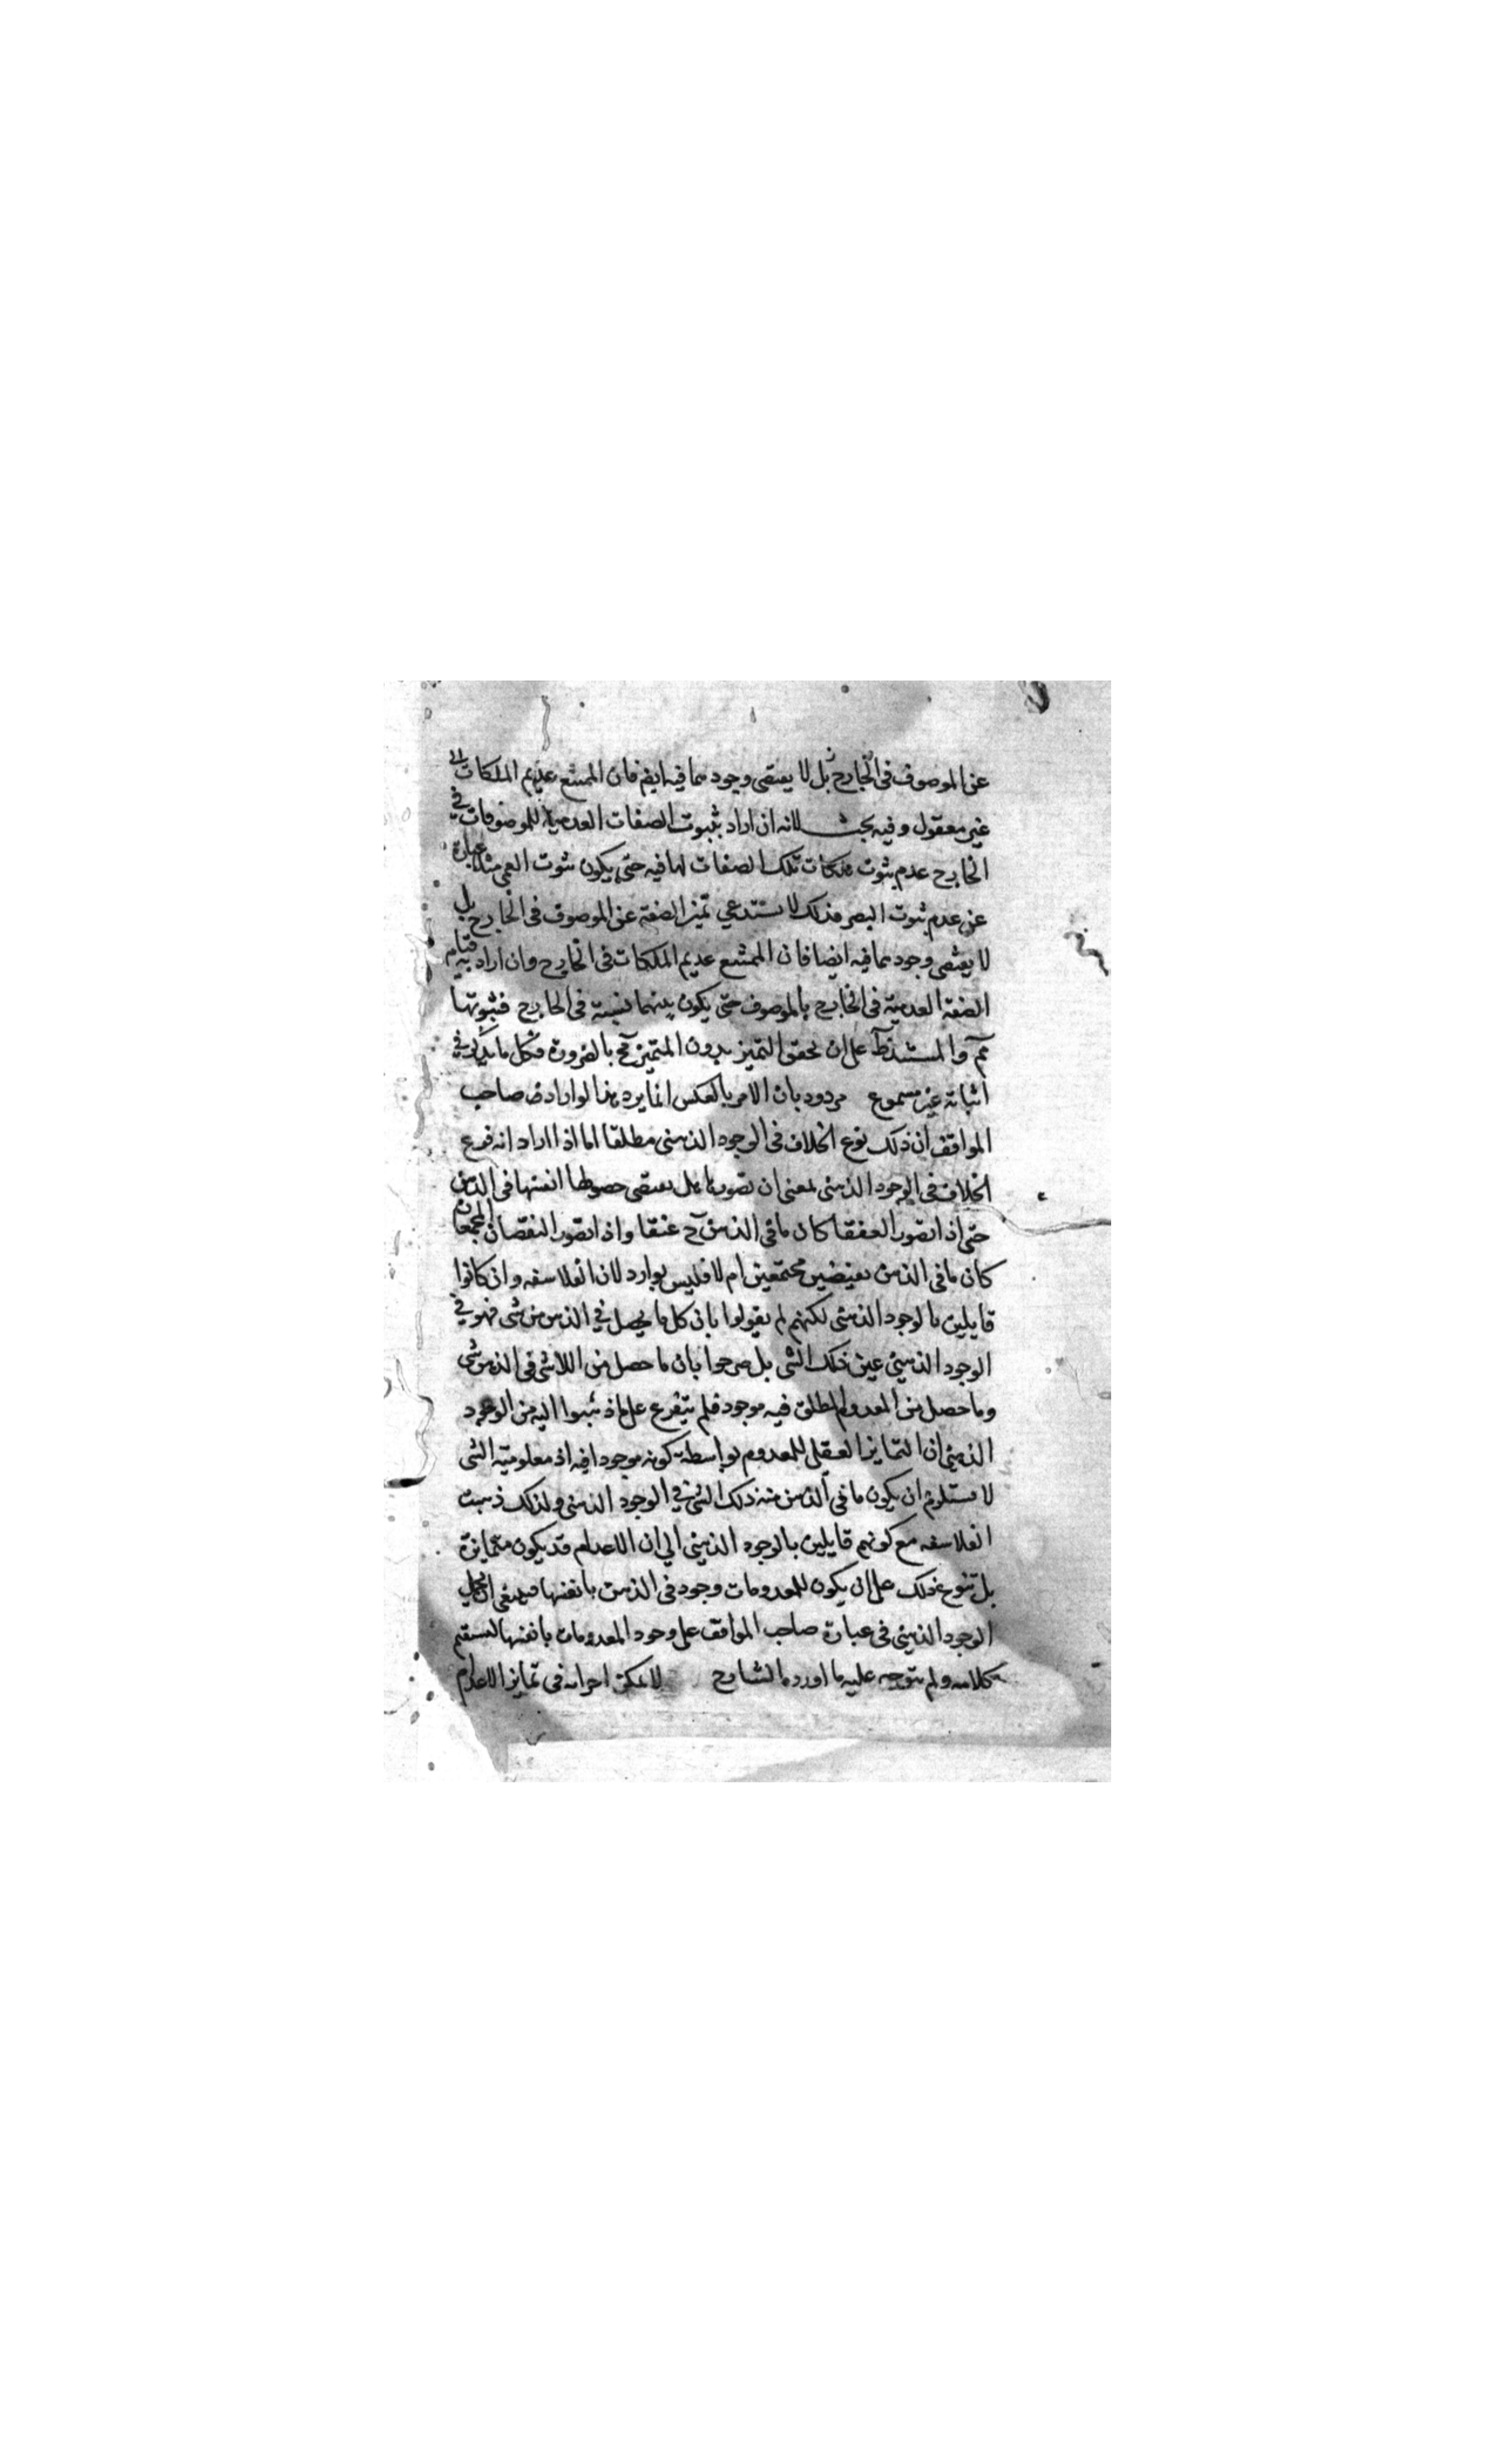 عن الموصوف في الخارج بل لا يقتضي وجودهما فيه ايضا فان الممتنع عديم الملكات
غير معقول وفيه بحث لانه ان اراد بثبوت الصفات العدمية للموصوفات في
الخارج عدم ثبوت ملكات تلك الصفات لها فيه حتى يكون ثبوت العمى مثلا عبارة
عن عدم ثبوت البصر فذلك لا يستدعي تميز الصفة عن الموصوف في الخارج بل
لا يقتضي وجودهما فيه ايضا فان الممتنع عديم الملكات في الخارج وان اراد به قيام
الصفة العدمية في الخارج بالموصوف حتى يكون بينهما نسبة في الخارج فثبوتها
مم والمستند على ان تحقق التميز بدون المتميز مح بالضرورة فكل ما يذكر في
اثباته غير مسموع مردود بان الامر بالعكس انما يرد هذا لو اراد صاحب
المواقف ان ذلك فرع الخلاف في الوجود الذهني مطلقا اما اذا اراد انه فرع
الخلاف في الوجود الذهني بمعنى ان تصورنا هل يقتضي حصولها انفسها في الذهن
حتى اذا تصور العنقا كان ما في الذهن ح عنقا واذا تصور النقيضان المجتمعان
كان ما في الذهن نقيضين مجتمعين ام لا فليس بوارد لان الفلاسفه وان كانوا
قايلين بالوجود الذهني لكنهم لم يقولوا بان كل ما يحصل في الذهن من شي فهو في
الوجود الذهني عين ذلك الشي بل صرحوا بان ما حصل من اللاشي في الذهن شي
وما حصل من المعدوم المطلق فيه موجود فلم يتفرع على ما ذهبوا اليه من الوجود
الذهني ان التمايز العقلي للمعدوم بواسطة كونه موجودا فيه اذ معلومية الشي
لا يستلزم ان يكون ما في الذهن منه ذلك الشي في الوجود الذهني ولذلك ذهبت
الفلاسفه مع كونهم قايلين بالوجود الذهني الي ان الاعدام قد يكون متمايزة
بل تنوع ذلك على ان يكون للمعدومات وجود في الذهن بانفسها فينبغي ان يحمل
الوجود الذهني في عبارة صاحب المواقف على وجود المعدومات بانفسها ليستقيم
كلامه ولم يتوجه عليه ما اورده الشارح لا يمكن اجراءه في تمايز الاعدام